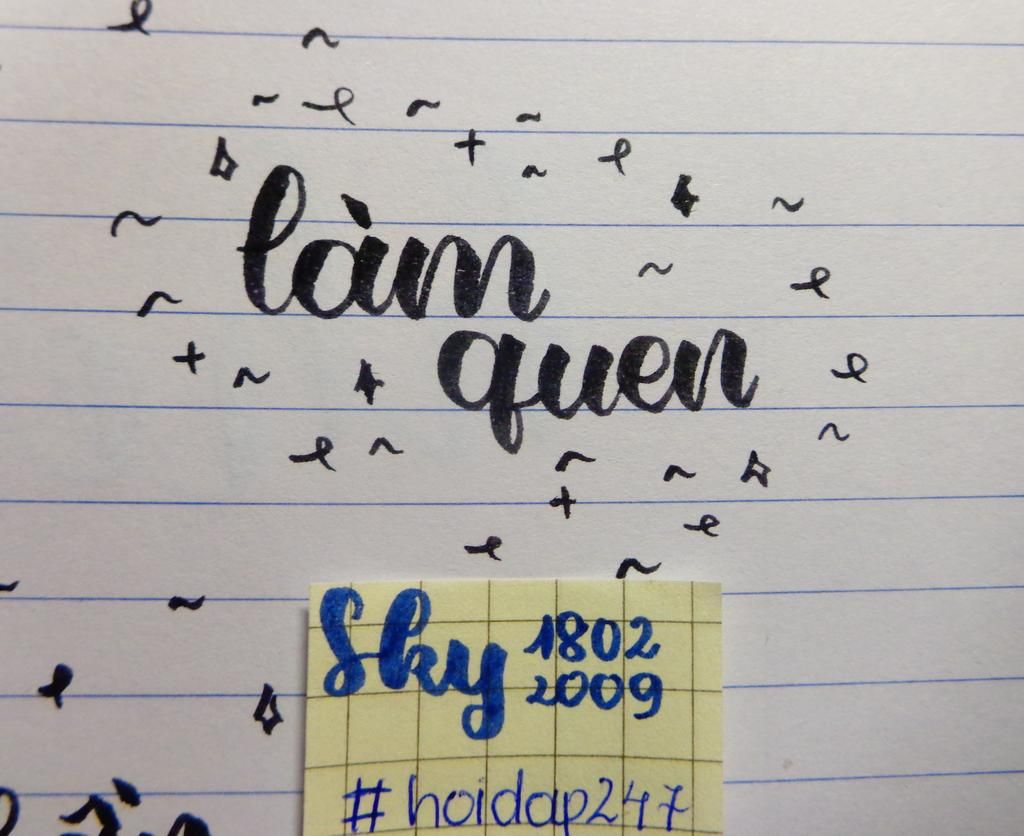 làm
quen
Sky 1802
2009
#hoidap247